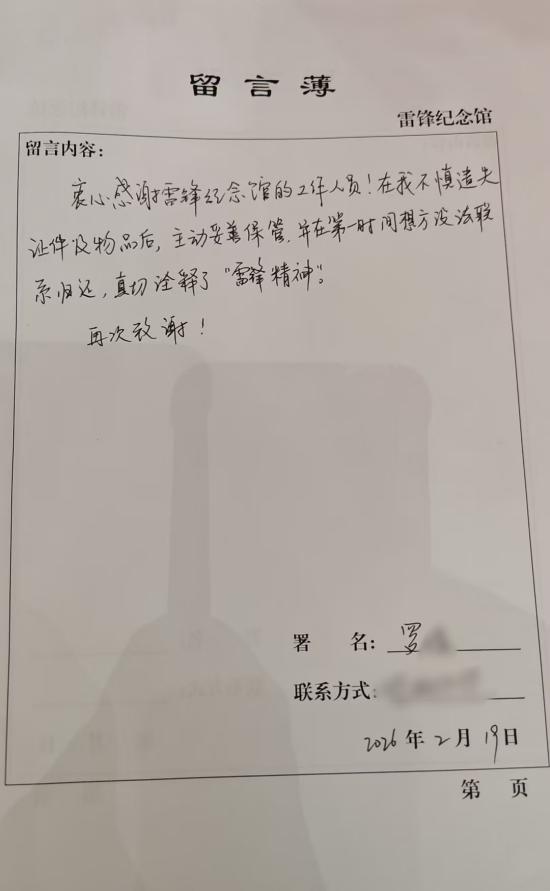 留言薄
雷锋纪念馆
留言内容：
衷心感谢雷锋纪念馆的工作人员！在我不慎遗失
证件及物品后，主动妥善保管，并在第一时间想方设法联
系归还，真切诠释了“雷锋精神”。
再次致谢！
署 名：罗
联系方式：
2026年2月19日
第 页